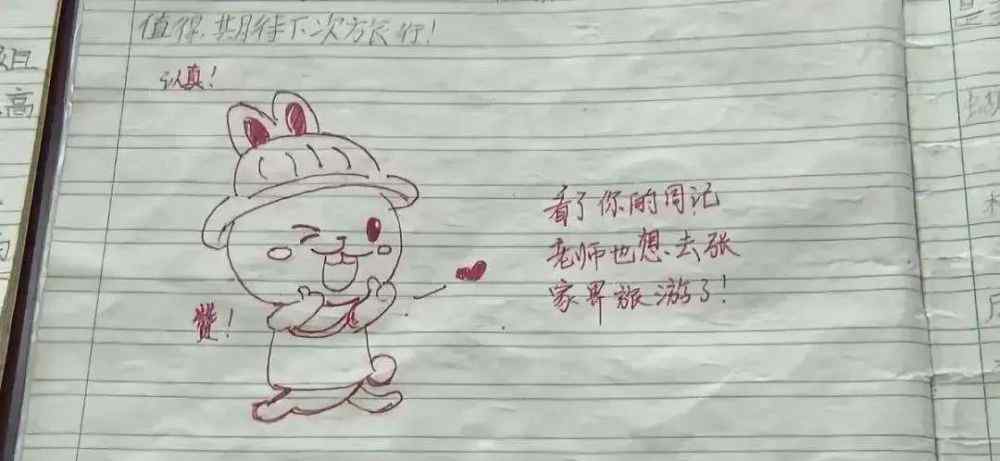 值得期待下次旅行！
认真！
看了你的周记
老师也想去张
家界旅游了！
赞！
高